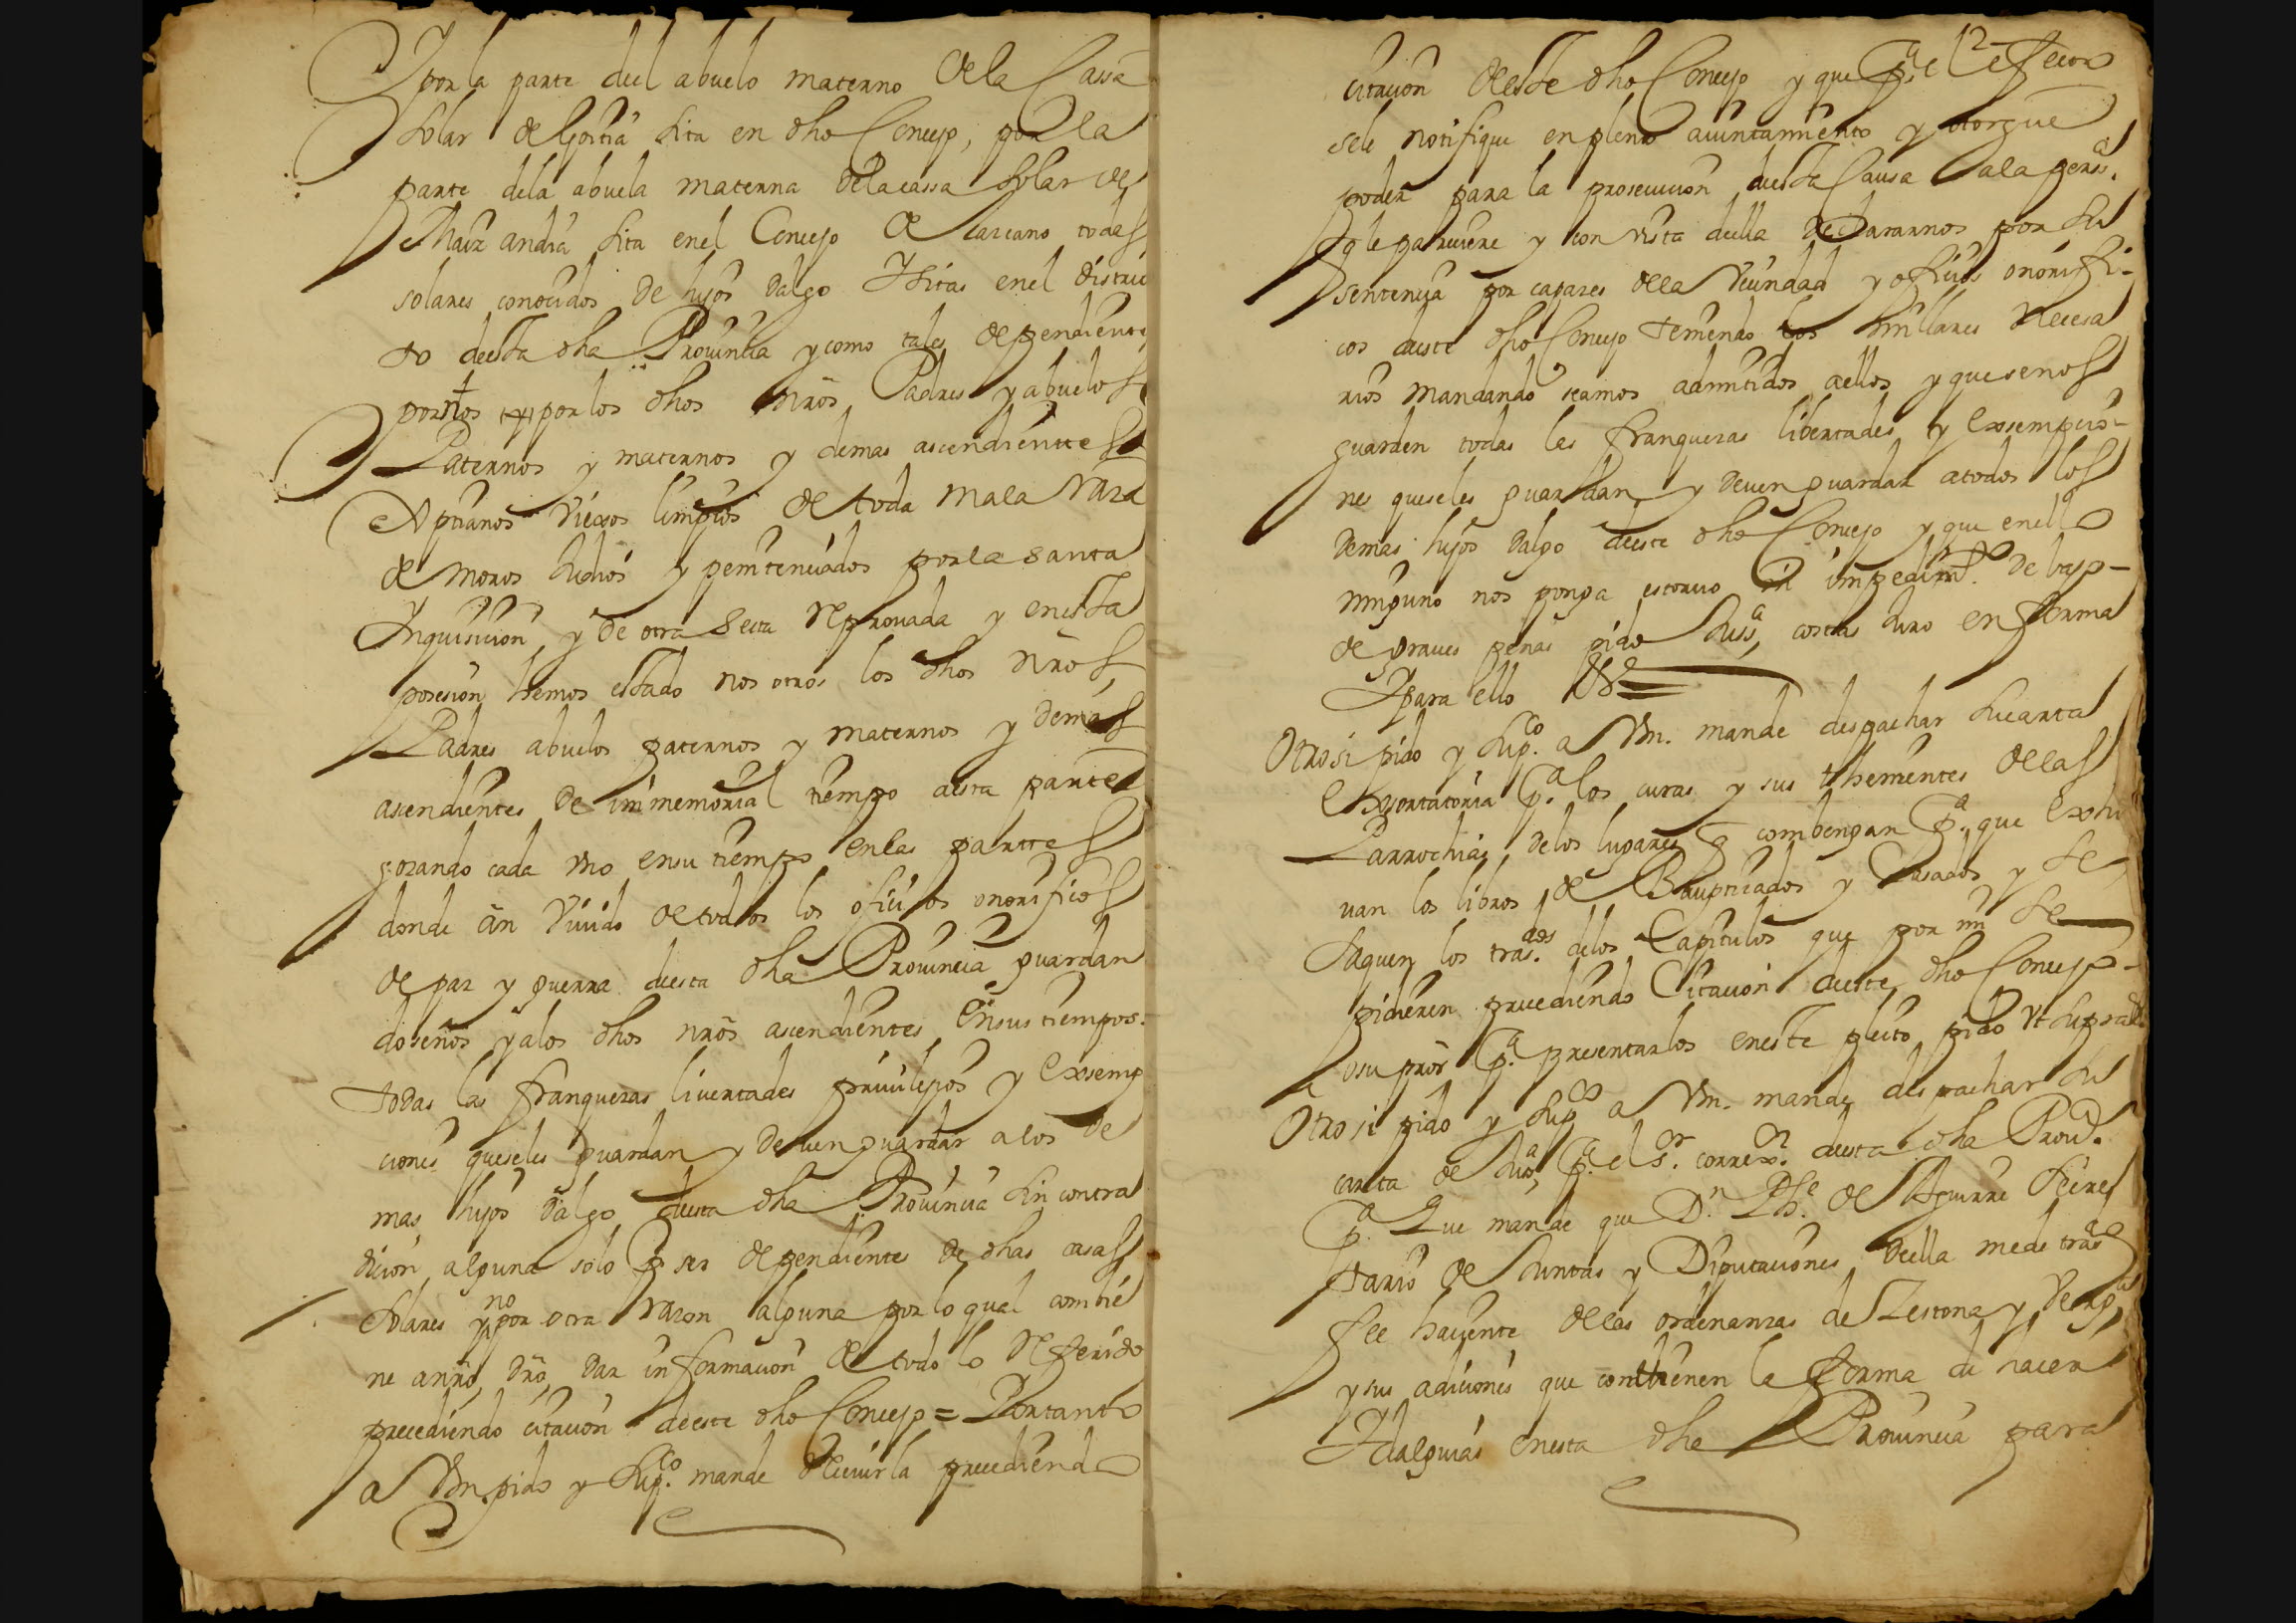 Y por la parte del abuelo materno de la Cassa
solar de Goitia sita en dho Concejo, por la
parte dela abuela materna dela cassa solar de
Maiz andia sita enel Concejo de Lazcano todas
solares conocidos de hijos dalgo Y sitas enel distric
to desta dha Prouincia y como tales dependientes
por nos y por los dhos nrôs Padres y abuelos
Paternos y maternos y demas ascendienttes
Xptianos Viexos limpios de toda mala raza
de moros Judios y penitenciados por la santa
Inquisicion y de otra secta Reprouada y en esta
posesion hemos estado nos otros los dhos nrôs
Padres abuelos paternos y maternos y demas
asendientes de immemorial tiempo aesta partte
gozando cada vno ensu tiempo en las parttes
donde ân Viuido de todos los oficios onorificos
de paz y guerra desta dha Prouincia guardan
dosenos y alos dhos nrôs ascendientes Ensus tiempos
todas las franquezas liuertades priuilegios y Exsemp
ciones queseles guardan y deuen guardar alos de
mas hijos dalgo desta dha Prouincia sin contra
dicion alguna solo por ser dependientes de dhas casas
solares y no por otra razon alguna por lo qual combie
ne anrô drô dar informacion de todo lo Referido
precediendo citacion deeste dho Concejo = Portanto
a Vm. pido y supco. mande Reciuirla precediendo
citacion deeste dho Concejo y que pa. el efecto
sele notifique en pleno aiuntamiento y otorgue
poder para la prosecucion desta Causa ala persa.
q le pareciere y con vista della declararnos por su
sentencia por capazes dela Vecindad y oficios onorifi-
cos deste dho Concejo teniendo los millares Necesa
rios mandando seamos admitidos aellos y quesenos
guarden todas las franquezas libertades y Exsempcio-
nes queseles guardan y deuen guardar atodos los
demas hijos dalgo deeste dho Concejo y que enello
ninguno nos ponga estoruo ni impedimto. debajo-
de graues penas pido Jussa, costas Juro en forma
Y para ello Va
Otrosi pido y supco. a Vm. mande despachar su carta
Exortatoria pa. los curas y sus thenientes delas
Parrochias delos lugares q combengan pa. que Exsiu
uan los libros de Bauptizados y Casados y se
saquen los trasdos. delos Capitulos que por mi se
pidieren precediendo Citacion deeste dho Concejo-
o su prôr pa. presentarlos eneste pleito pido Vt supra
Otrosi pido y supco a Vm. mande despachar su
carta de Jusa, pa. el sr. correxor. desta dha Proua.
pa. Que mande que Dn. Phe. de Aguirre secre
tario de Juntas y Diputaciones della mede trasdo
fee haciente delas ordenanzas de Zestona y Vergra
y sus adiciones que contienen la forma de hacer
Ydalguias enesta dha Prouincia para